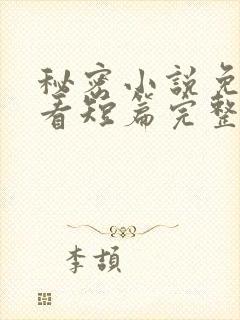 秘密小说免
看短篇完整
李頡